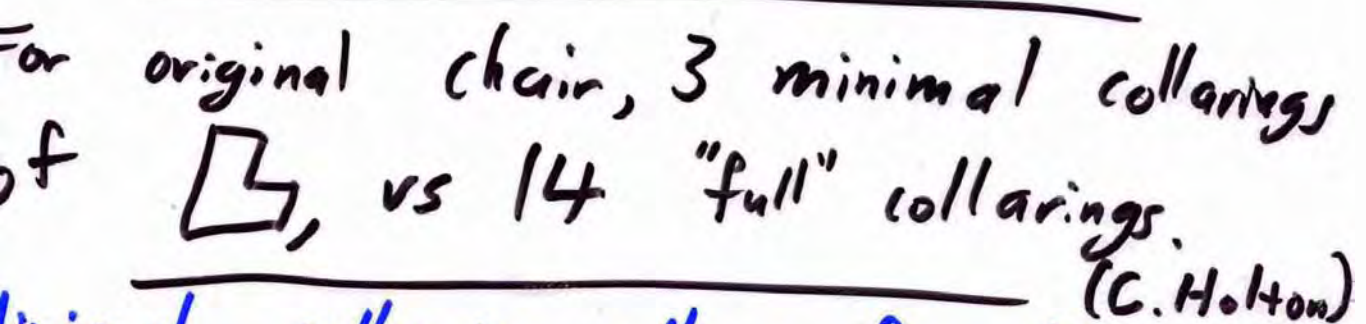 For original chair, 3 minimal collarings
of , vs 14 "full" collarings.
(C. Holton)